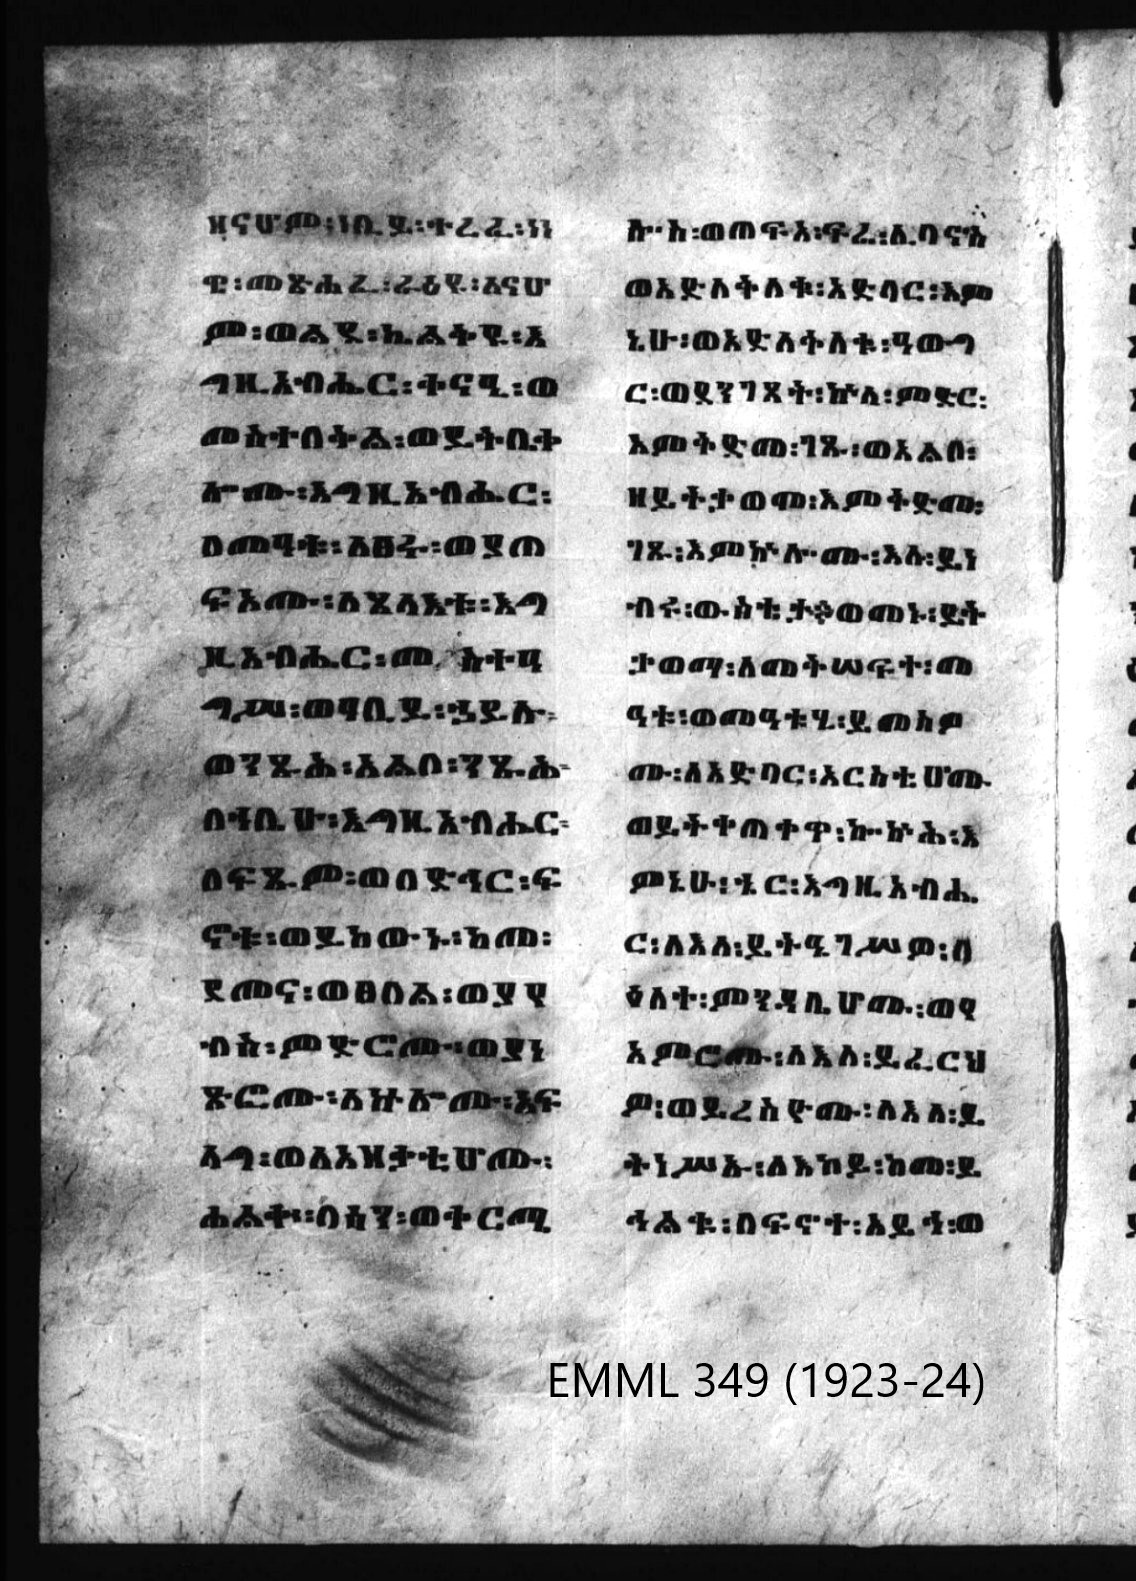 ዘናሆም፡ነቢይ፡ተረፈ፡ነነ
ዌ፡መጽሐፈ፡ራእዩ፡ለናሆ
ም፡ወልደ፡ኬልቅዩ፡እ
ግዚአብሔር፡ቀናዒ፡ወ
መስተበቅል፡ወይትቤቀ
ሎሙ፡እግዚአብሔር፡
በመዓቱ፡ለፀሩ፡ወያጠ
ፍኦሙ፡ለጸላእቱ፡እግ
ዚአብሔር፡መስተዓ
ግሥ፡ወዓቢይ፡ኀይሉ፡
ወንጹሕ፡አልቦ፡ንጹሕ፡
በኀቤሁ፡እግዚአብሔር፡
በፍጹም፡ወበድቅር፡ፍ
ኖቱ፡ወይከውኑ፡ከመ፡
ደመና፡ወፀበል፡ወያየ
ብስ፡ምድሮሙ፡ወያነ
ጽፎሙ፡ለኵሎሙ፡አፍ
ላግ፡ወለአህታቲሆሙ፡
ሐልቀ፡ባሳን፡ወቀርሜ
ሎስ፡ወጠፍአ፡ፍሬ፡ሊባኖስ
ወአድለቅለቁ፡አድባር፡እም
ኔሁ፡ወአድለቅለቁ፡ዓውግ
ር፡ወደንገጸት፡ኵላ፡ምድር፡
እምቅድመ፡ገጹ፡ወአልቦ፡
ዘይትቃወሞ፡እምቅድመ፡
ገጹ፡እምኵሎሙ፡እለ፡ይነ
ብሩ፡ውስቴታ፡ወመኑ፡ይት
ቃወማ፡ለመቅሠፍተ፡መ
ዓቱ፡ወመዓቱሂ፡ይመስዎ
ሙ፡ለአድባር፡አርእስቲሆሙ
ወይትቀጠቀጥ፡ኰኵሕ፡እ
ምኔሁ፡ኄር፡እግዚአብሔ
ር፡ለእለ፡ይትዔገሥዎ፡በ
ዕለተ፡ምንዳቤሆሙ፡ወየ
አምሮሙ፡ለእለ፡ይፈርህ
ዎ፡ወይረስዮሙ፡ለእለ፡ይ
ትነሥኡ፡ለእከይ፡ከመ፡ይ
ኅልቁ፡በፍኖተ፡አይኅ፡ወ
EMML 349 (1923-24)